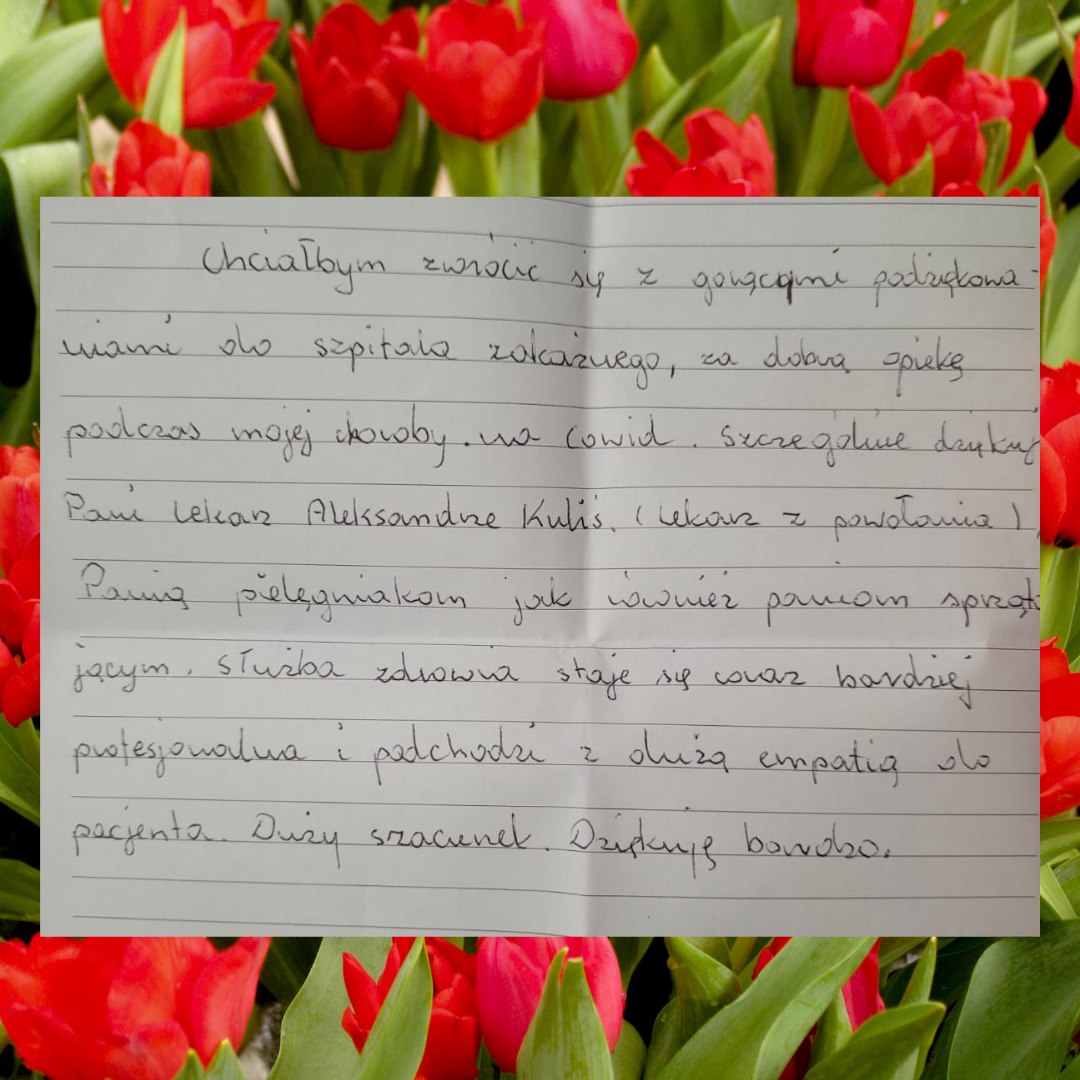 Chciałbym zwrócić się z gorącymi podziękowa-
niami do szpitala zakaźnego, za dobrą opiekę
podczas mojej choroby. na Cowid. Szczególnie dziękuję
Pani lekarz Aleksandrze Kuliś. (lekarz z powołania)
Panią pielęgniakom jak również paniom sprząta
jącym. Służba zdrowia staje się coraz bardziej
profesjonalna i podchodzi z dużą empatią do
pacjenta. Duży szacunek. Dziękuję bardzo.